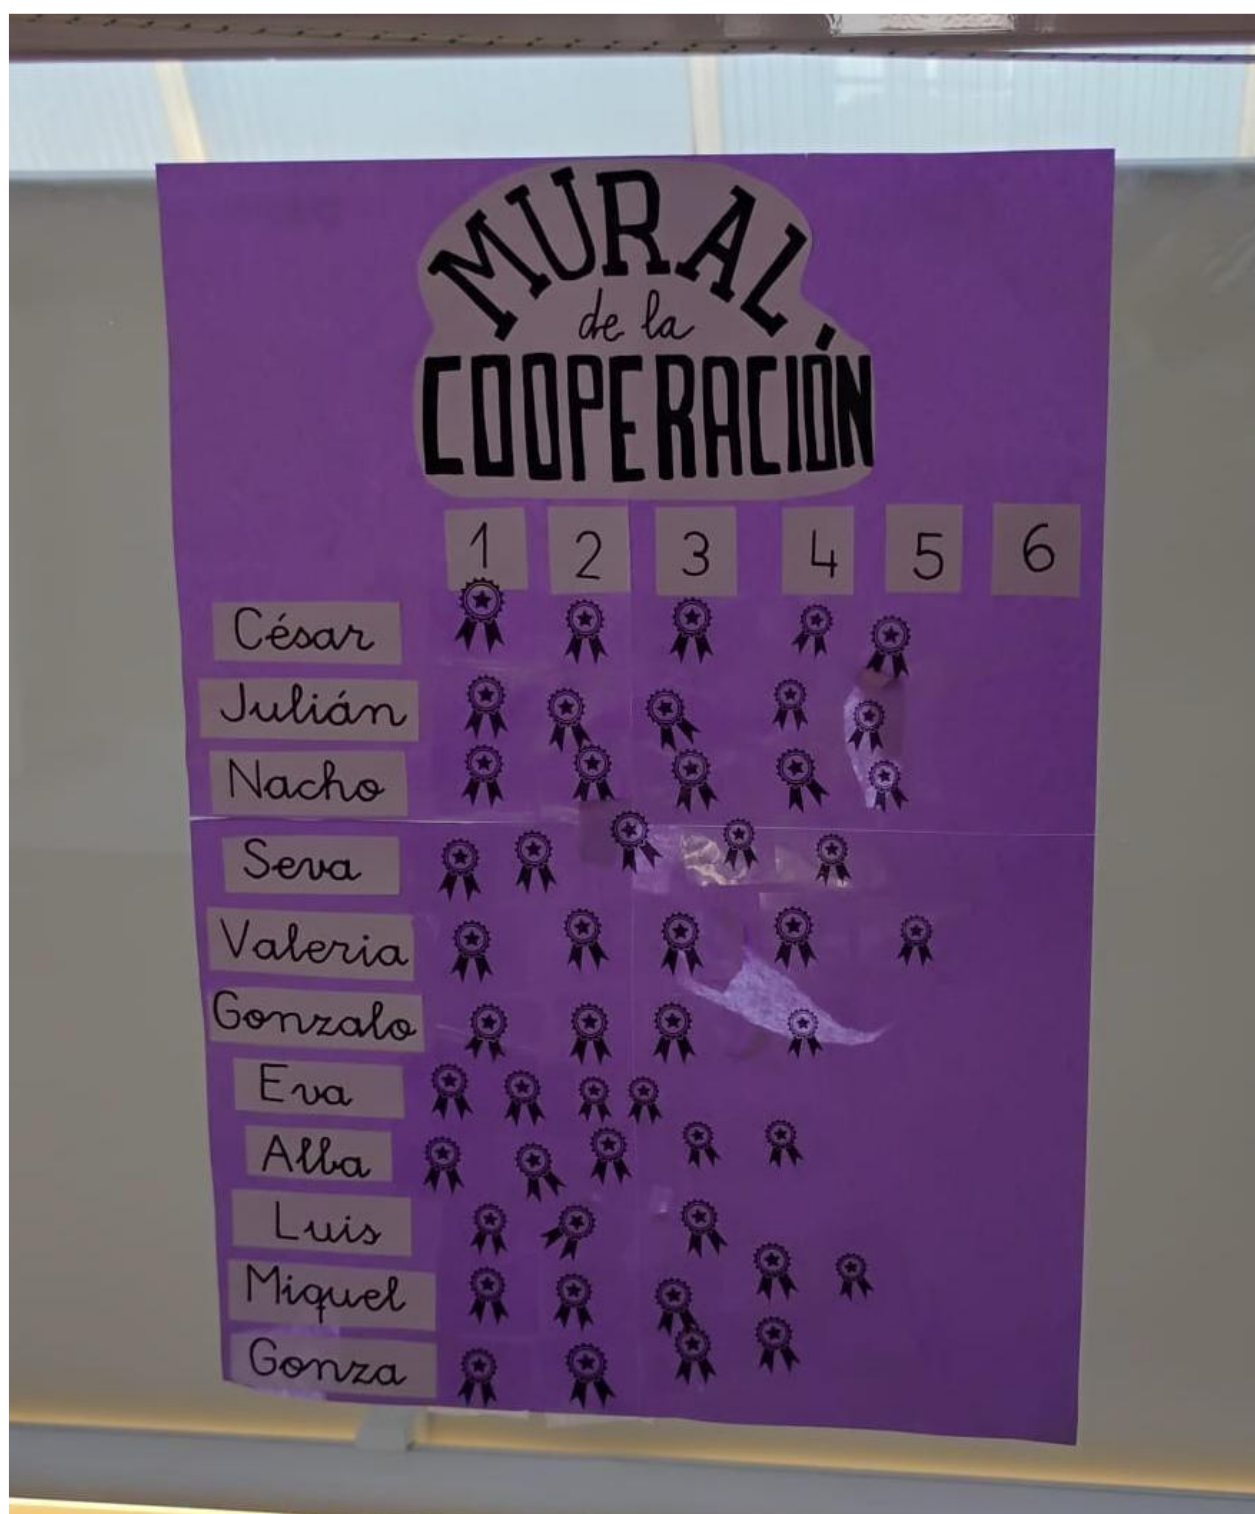 MURAL
de la
COOPERACIÓN
1 2 3 4 5 6
César
Julián
Nacho
Seva
Valeria
Gonzalo
Eva
Alba
Luis
Miquel
Gonza